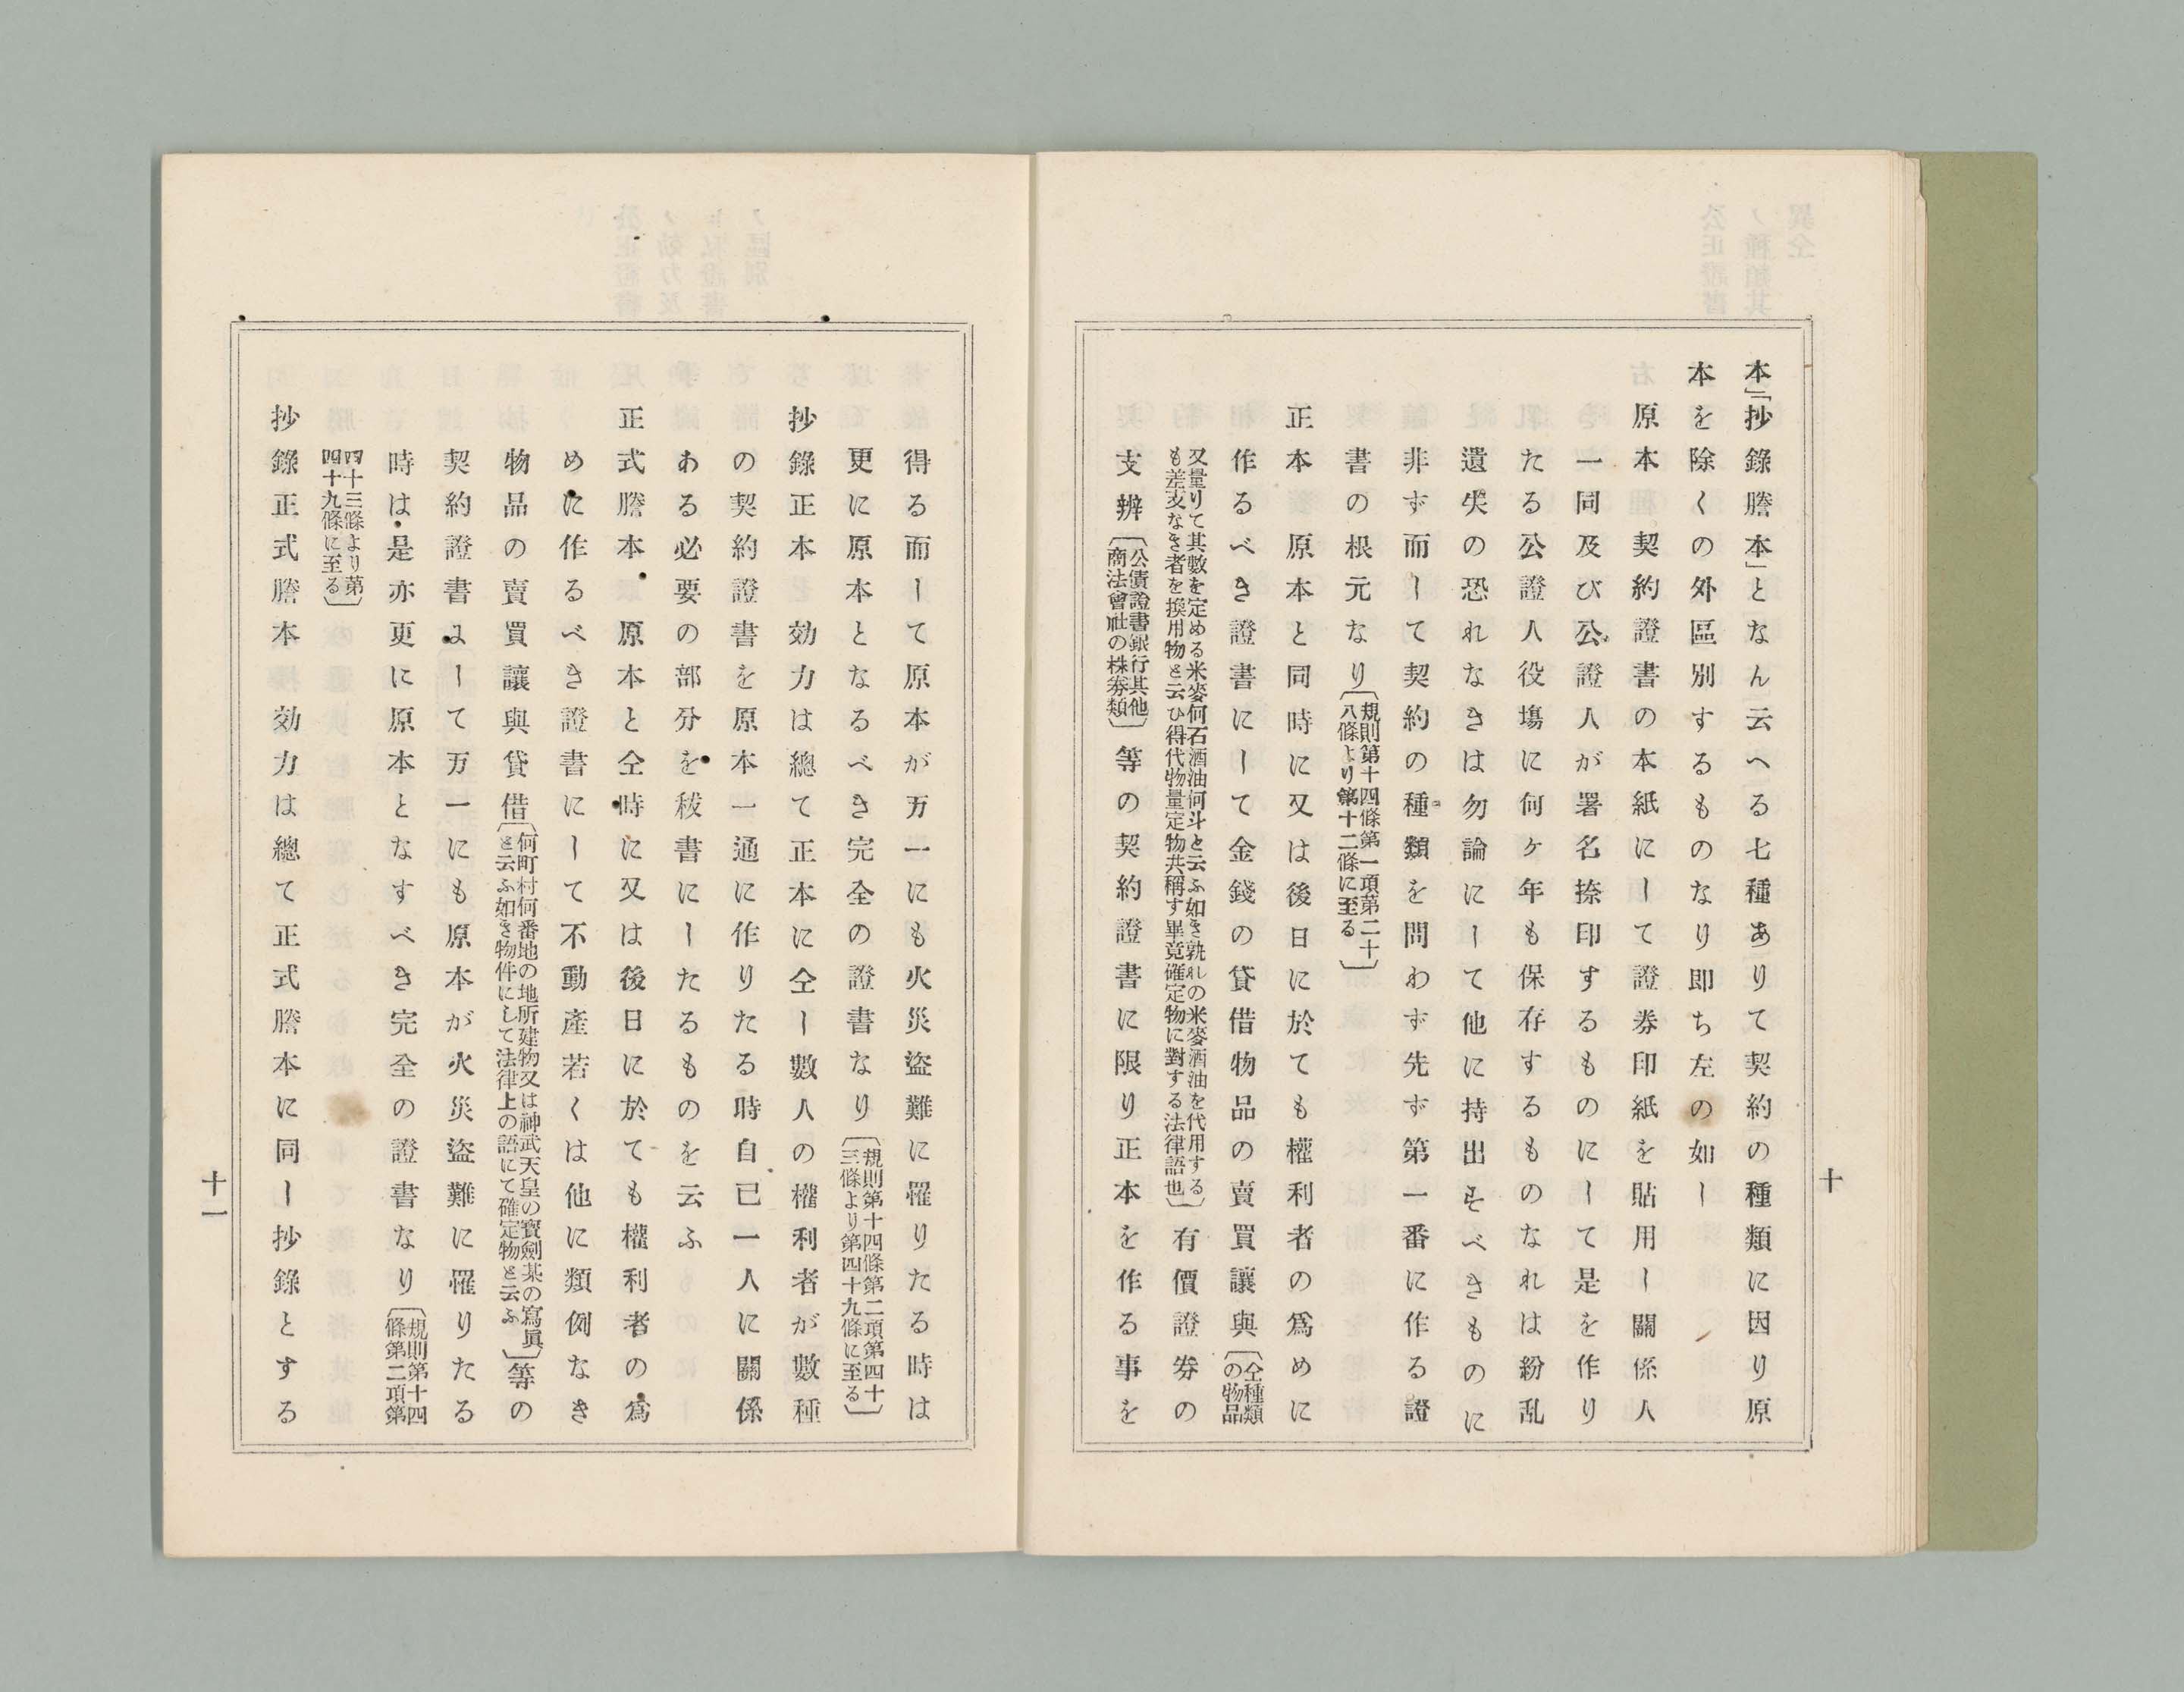 本」「抄錄謄本」となん云へる七種ありて契約の種類に因り原
本を除くの外區別するものなり即ち左の如し
原本　契約證書の本紙にして證券印紙を貼用し關係人
一同及び公證人が署名捺印するものにして是を作り
たる公證人役塲に何ヶ年も保存するものなれは紛乱
遺失の恐れなきは勿論にして他に持出すべきものに
非ず而して契約の種類を問わず先ず第一番に作る證
書の根元なり〔規則第十四條第一項第二十
八條より第十二條に至る〕
正本　原本と同時に又は後日に於ても權利者の爲めに
作るべき證書にして金錢の貸借物品の賣買讓與〔仝種類
の物品
又量りて其數を定める米麥何石酒油何斗と云ふ如き孰れの米麥酒油を代用する
も差支なき者を換用物と云ひ得代物量定物共稱す畢竟確定物に對する法律語也〕有價證劵の
支辨〔公債證書銀行其他
商法會社の株劵類〕等の契約證書に限り正本を作る事を
十
得る而して原本が万一にも火災盜難に罹りたる時は
更に原本となるべき完全の證書なり〔規則第十四條第二項第四十
三條より第四十九條に至る〕
抄錄正本　効力は總て正本に仝し數人の權利者が數種
の契約證書を原本一通に作りたる時自己一人に關係
ある必要の部分を秡書にしたるものを云ふ
正式謄本　原本と仝時に又は後日に於ても權利者の爲
めに作るべき證書にして不動產若くは他に類例なき
物品の賣買讓與貸借〔何町村何番地の地所建物又は神武天皇の寶劍某の寫眞
と云ふ如き物件にして法律上の語にて確定物と云ふ〕等の
契約證書よして万一にも原本が火災盜難に罹りたる
時は是亦更に原本となすべき完全の證書なり〔規則第十四
條第二項第
四十三條より第
四十九條に至る〕
抄錄正式謄本　効力は總て正式謄本に同し抄錄とする
十一